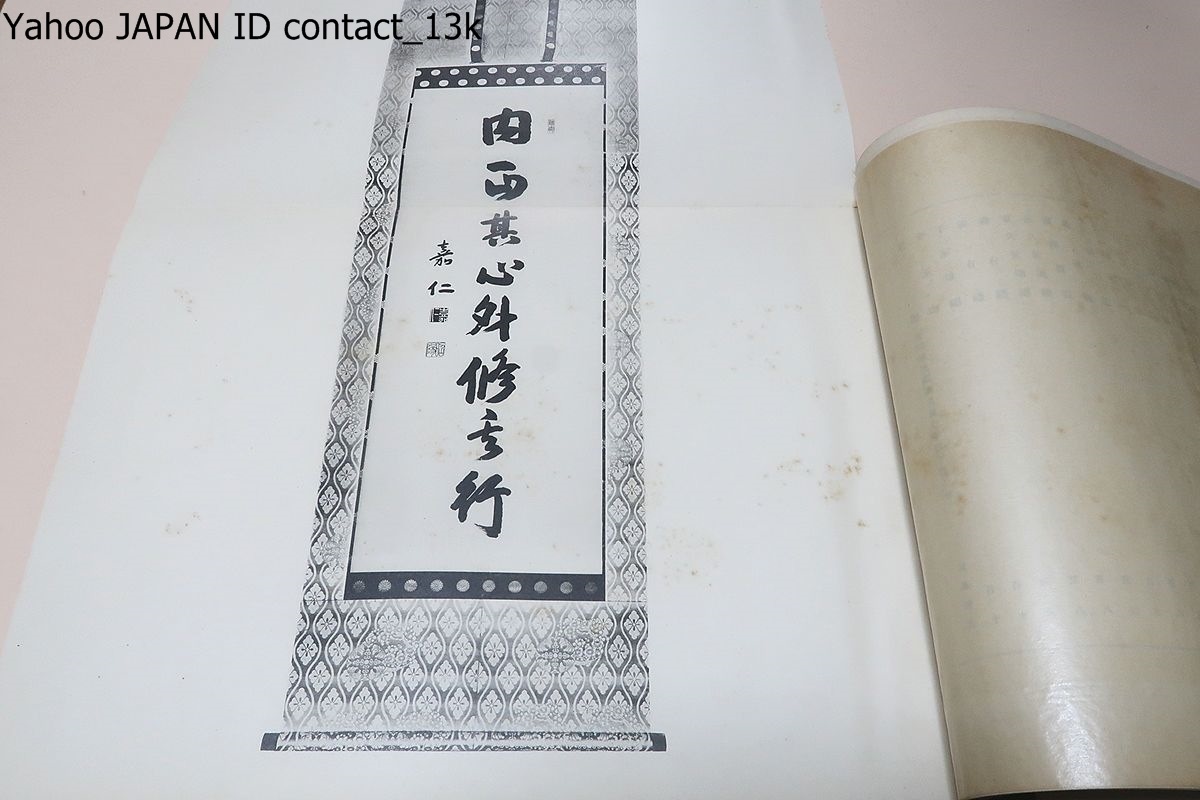 Yahoo JAPAN ID contact_13k
内正其心外修其行
嘉仁